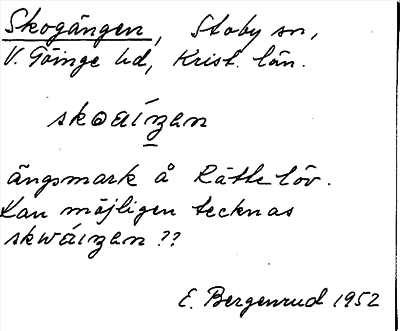 Skogängen, Stoby sn,
V. Göinge hd, Krist. län.
skoaízan
ängsmark å Rättelöv.
Kan möjligen tecknas
skwáizan??
E. Bergenrud 1952